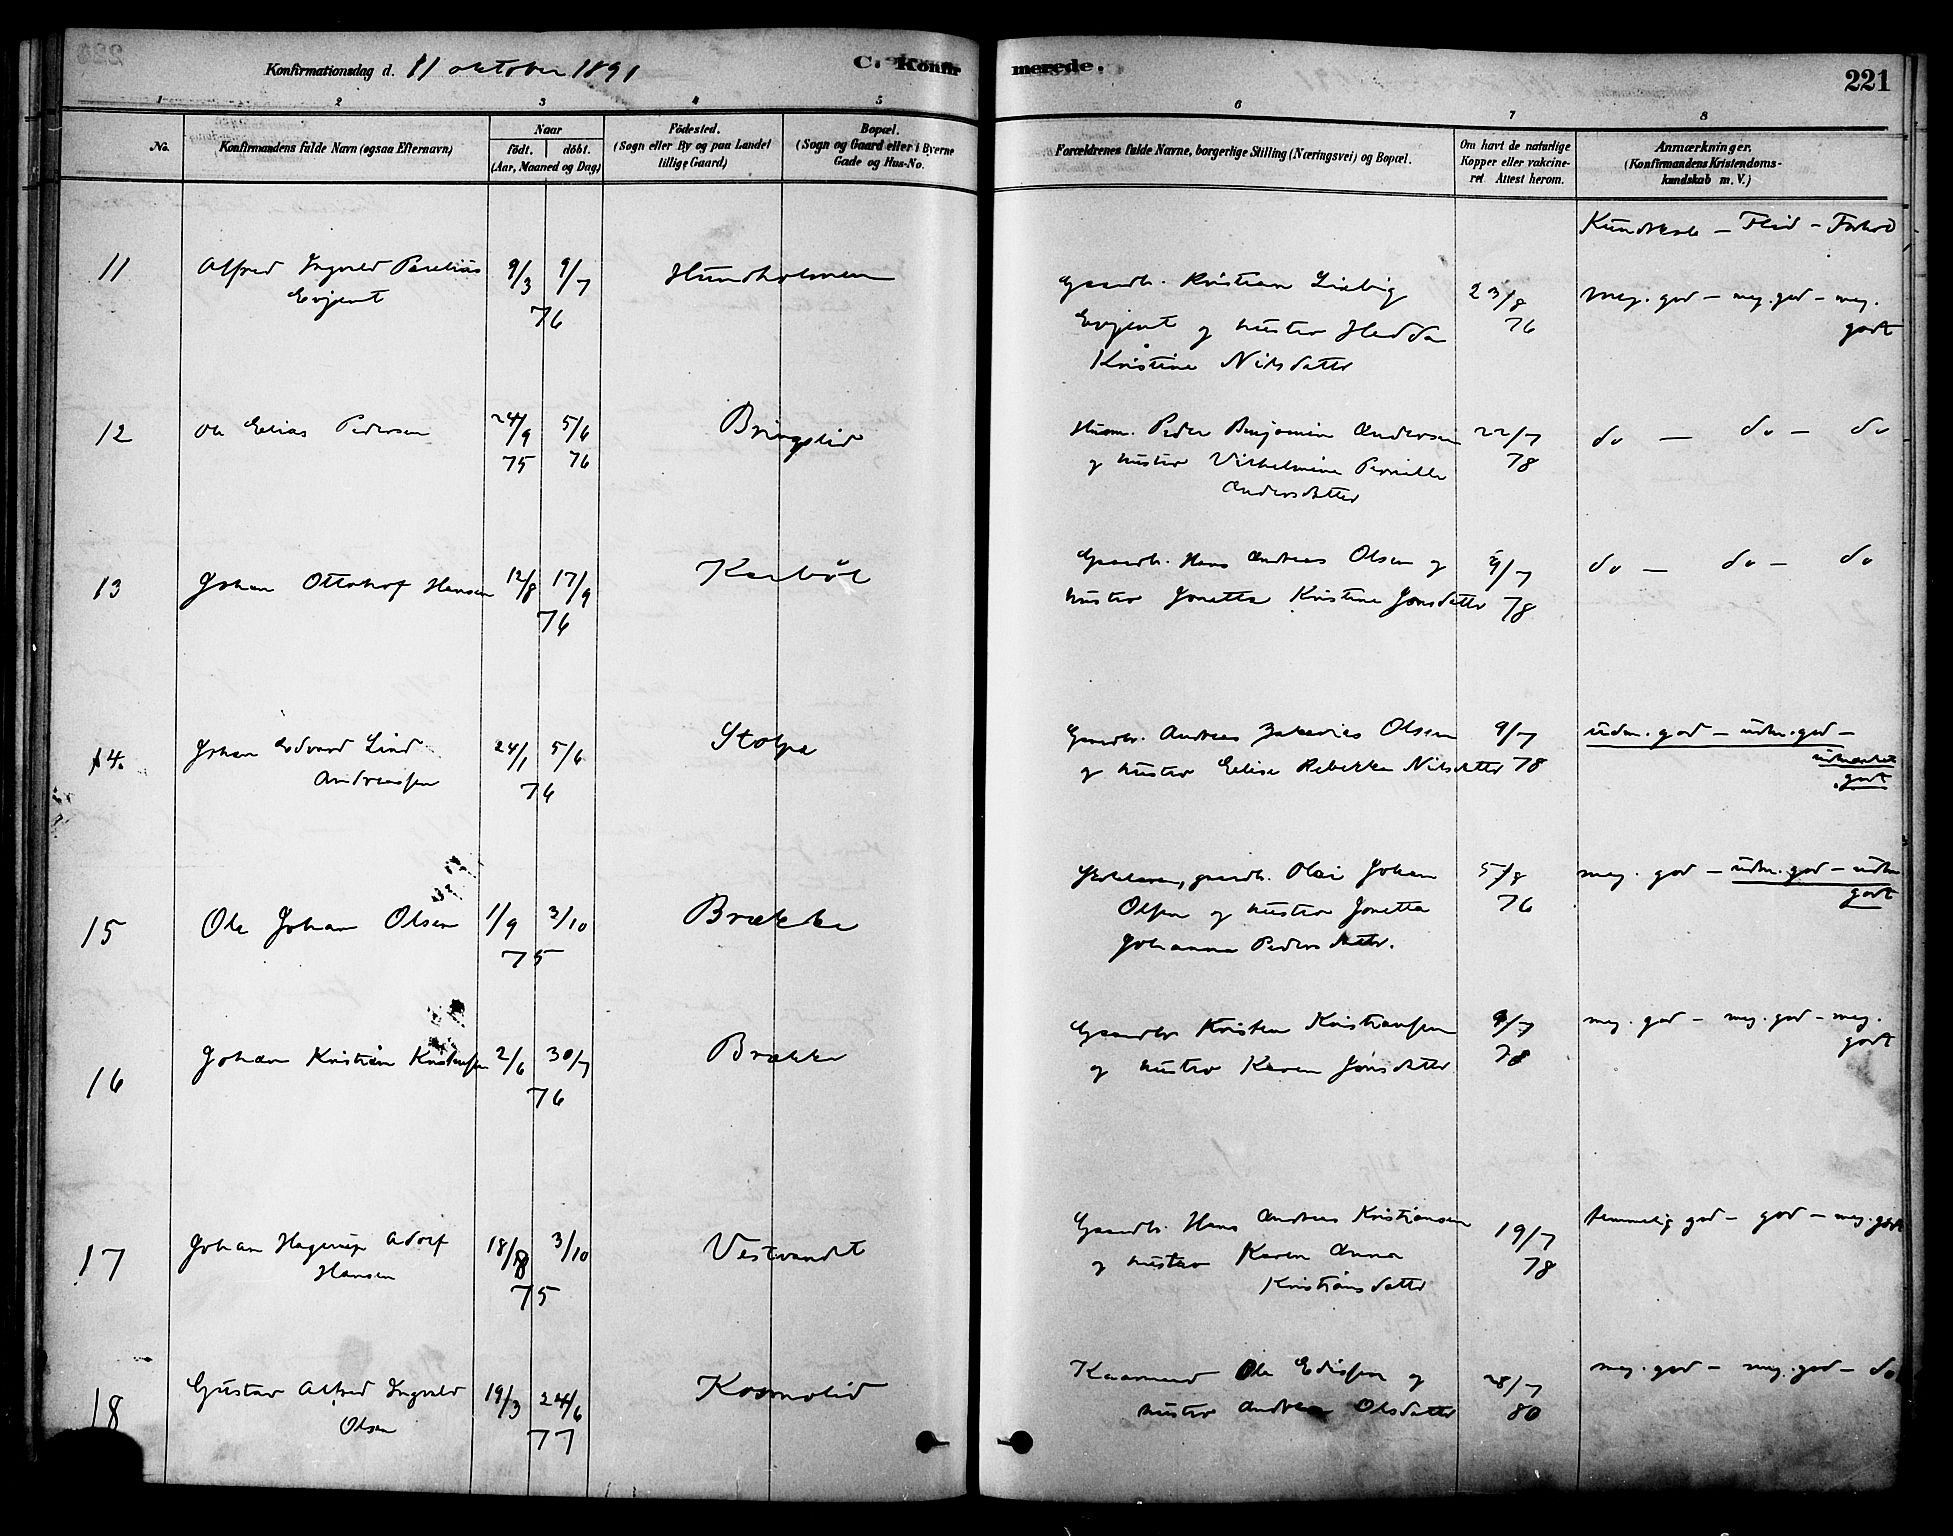 Konfirmationsdag d. 11 oktober 1891
C. Konfirmerede.
221
1 2 3 4 5 6 7 8
No.
Konfirmandens fulde Navn (ogsaa Efternavn)
Naar
födt. döbt.
(Aar, Maaned og Dag)
Födested.
(Sogn eller By og paa Landet
tillige Gaard)
Bopæl.
(Sogn og Gaard eller i Byerne
Gade og Hus-No.
Forældrenes fulde Navne, borgerlige Stilling (Næringsvei) og Bopæl.
Om havt de naturlige
Kopper eller vakcine-
ret Attest herom.
Anmærkninger.
(Konfirmandens Kristendoms-
kundskab m. V.)
Kundskab – Flid – Forhold
11 Alfred Ingvald Parelius 9/3 9/7 Hundholmen
Evjent 76
Gaardb. Kristian Liebig 23/8 Meg. god – meg. god – meg.
Evjent og hustru Hedda 76 godt
Kristine Nilsdatter
12 Ole Elias Pedersen 24/9 5/6 Bringslid
75 76
Husm. Peder Benjamin Andersen 22/7 do – do – do
og hustru Vilhelmine Pernille 78
Andersdatter
13 Johan Ottohof Hansen 12/8 17/9 Karbøl
76
Gaardb. Hans Andreas Olsen og 9/7 do – do – do
hustru Jonetta Kristine Jonsdatter 78
14. Johan Edvard Lind 24/1 5/6 Stolpe
Andreassen 76
Gaardb. Andreas Zakarias Olsen 9/7 udm. god – udm. god –
og hustru Elise Rebekka Nilsdatter 78 udmærket
godt
15 Ole Johan Olsen 1/9 3/10 Brække
75
gaardb. Olai Johan 5/8 meg. god – udm. god – udm
Olsen og hustru Jonetta 76 godt
Johanna Pedersdatter.
16 Johan Kristian Kristensen 2/6 30/7 Brække
76
Gaardbr Kristen Kristiansen 9/7 meg. god – meg. god – meg.
og hustru Karen Jonsdatter 78 godt
17 Johan Hagerup Adolf 18/8 3/10 Vestvandet
Hansen 75
Gaardb. Hans Andreas Kristiansen 19/7 temmelig god – god – meg. godt
og hustru Karen Anna 78
Kristiansdatter
18 Gustav Alfred Ingvald 19/3 24/6 Kosmolid
Olsen 77
Ole Edissen og 28/7 meg. god – meg. god – do
hustru Andrea Olsdatter 80